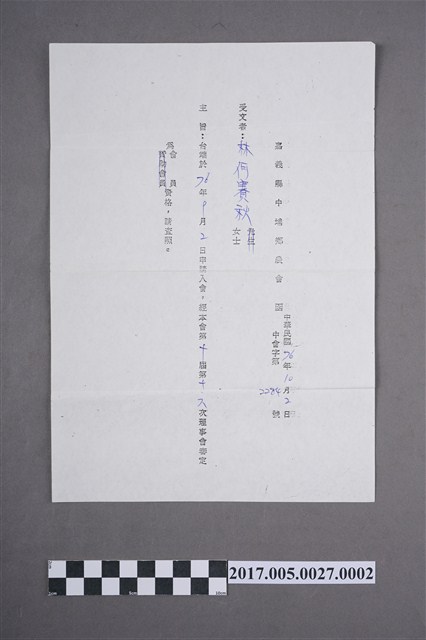 嘉義縣中埔鄉農會 函
中華民國76年10月2日
中會字第2284號
受文者：林何賽秋 先生
女士
主 旨：台端於76年9月2日申請入會，經本會第十屆第十八次理事會審定
為會 員
贊助會員資格，請查照。
2017.005.0027.0002